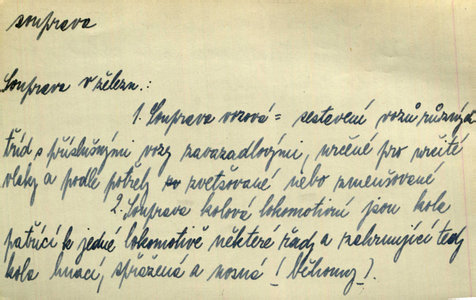 souprava
Souprava v želez.:
1. Souprava vozová = sestavení vozů různých
tříd s příslušnými vozy zavazadlovými, určené pro určité
vlaky a podle potřeby zvětšované nebo zmenšované
2. Souprava kolová lokomotivní jsou kola
patřící k jedné lokomotivě některé řady a zahrnující tedy
kola hnací, spřažená a nosná (běhouny).